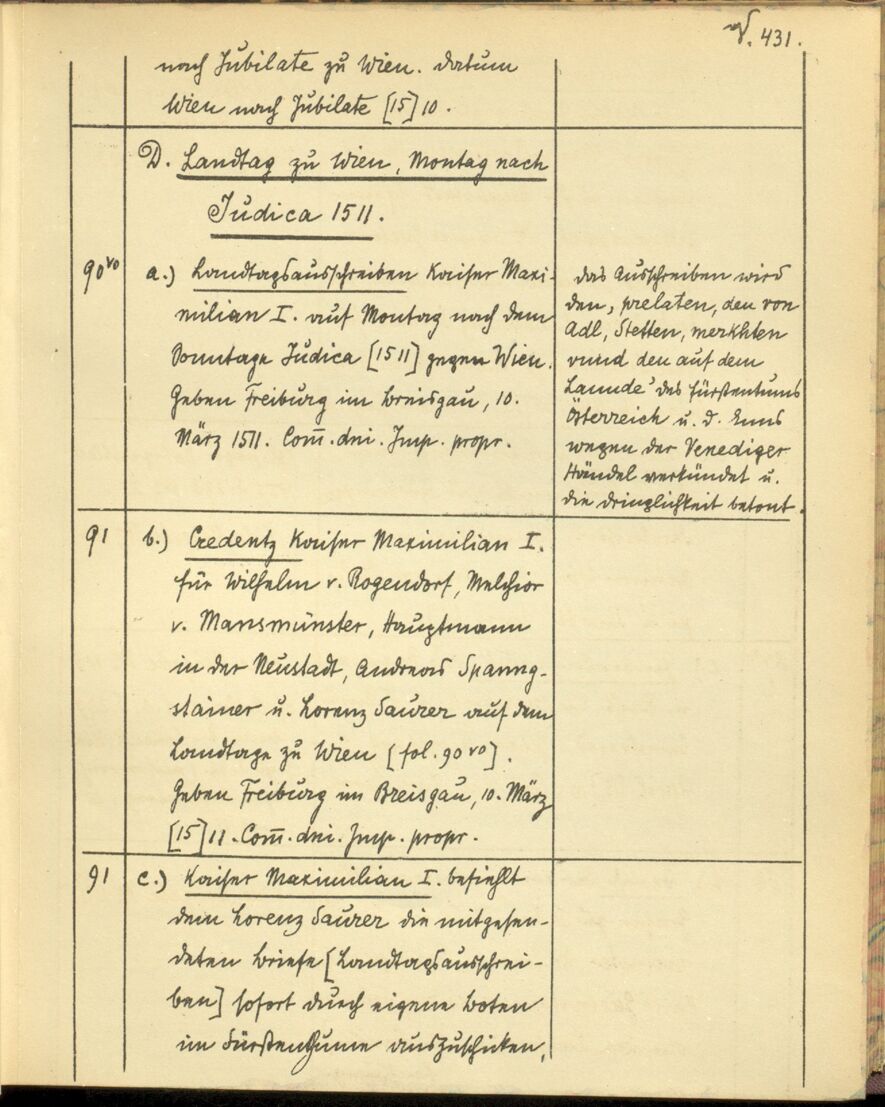 V. 431.
nach Jubilate zu Wien. Datum
Wien nach Jubilate [15]10.
D. Landtag zu Wien, Montag nach
Judica 1511.
90vo
a.) Landtagsausschreiben Kaiser Maxi-
milian I. auf Montag nach dem
Sonntage Judica [1511] gegen Wien.
Geben Freiburg im Breisgau, 10.
März 1511. Com̅. dni. Imp. propr.
das Ausschreiben wird
den, prelaten, den von
Adl, Stetten, merkhten
vnnd den auf dem
Lannde' des fürstentums
Österreich u. d. Enns
wegen der Venediger
Händel verkündet u.
die dringlichkeit betont.
91
b.) Credentz Kaiser Maximilian I.
für Wilhelm v. Rogendorf, Melchior
v. Mansmünster, Hauptmann
in der Neustadt, Andreas Spanng-
stainer u. Lorenz Saurer auf dem
Landtage zu Wien [fol. 90vo].
Geben Freiburg im Breisgau, 10. März
[15]11. Com̅. dni. Imp. propr.
91
c.) Kaiser Maximilian I. befiehlt
dem Lorenz Saurer die mitgesen-
deten Briefe [Landtagsausschrei-
ben] sofort durch eigene Boten
im Fürstenthume auszuschicken,